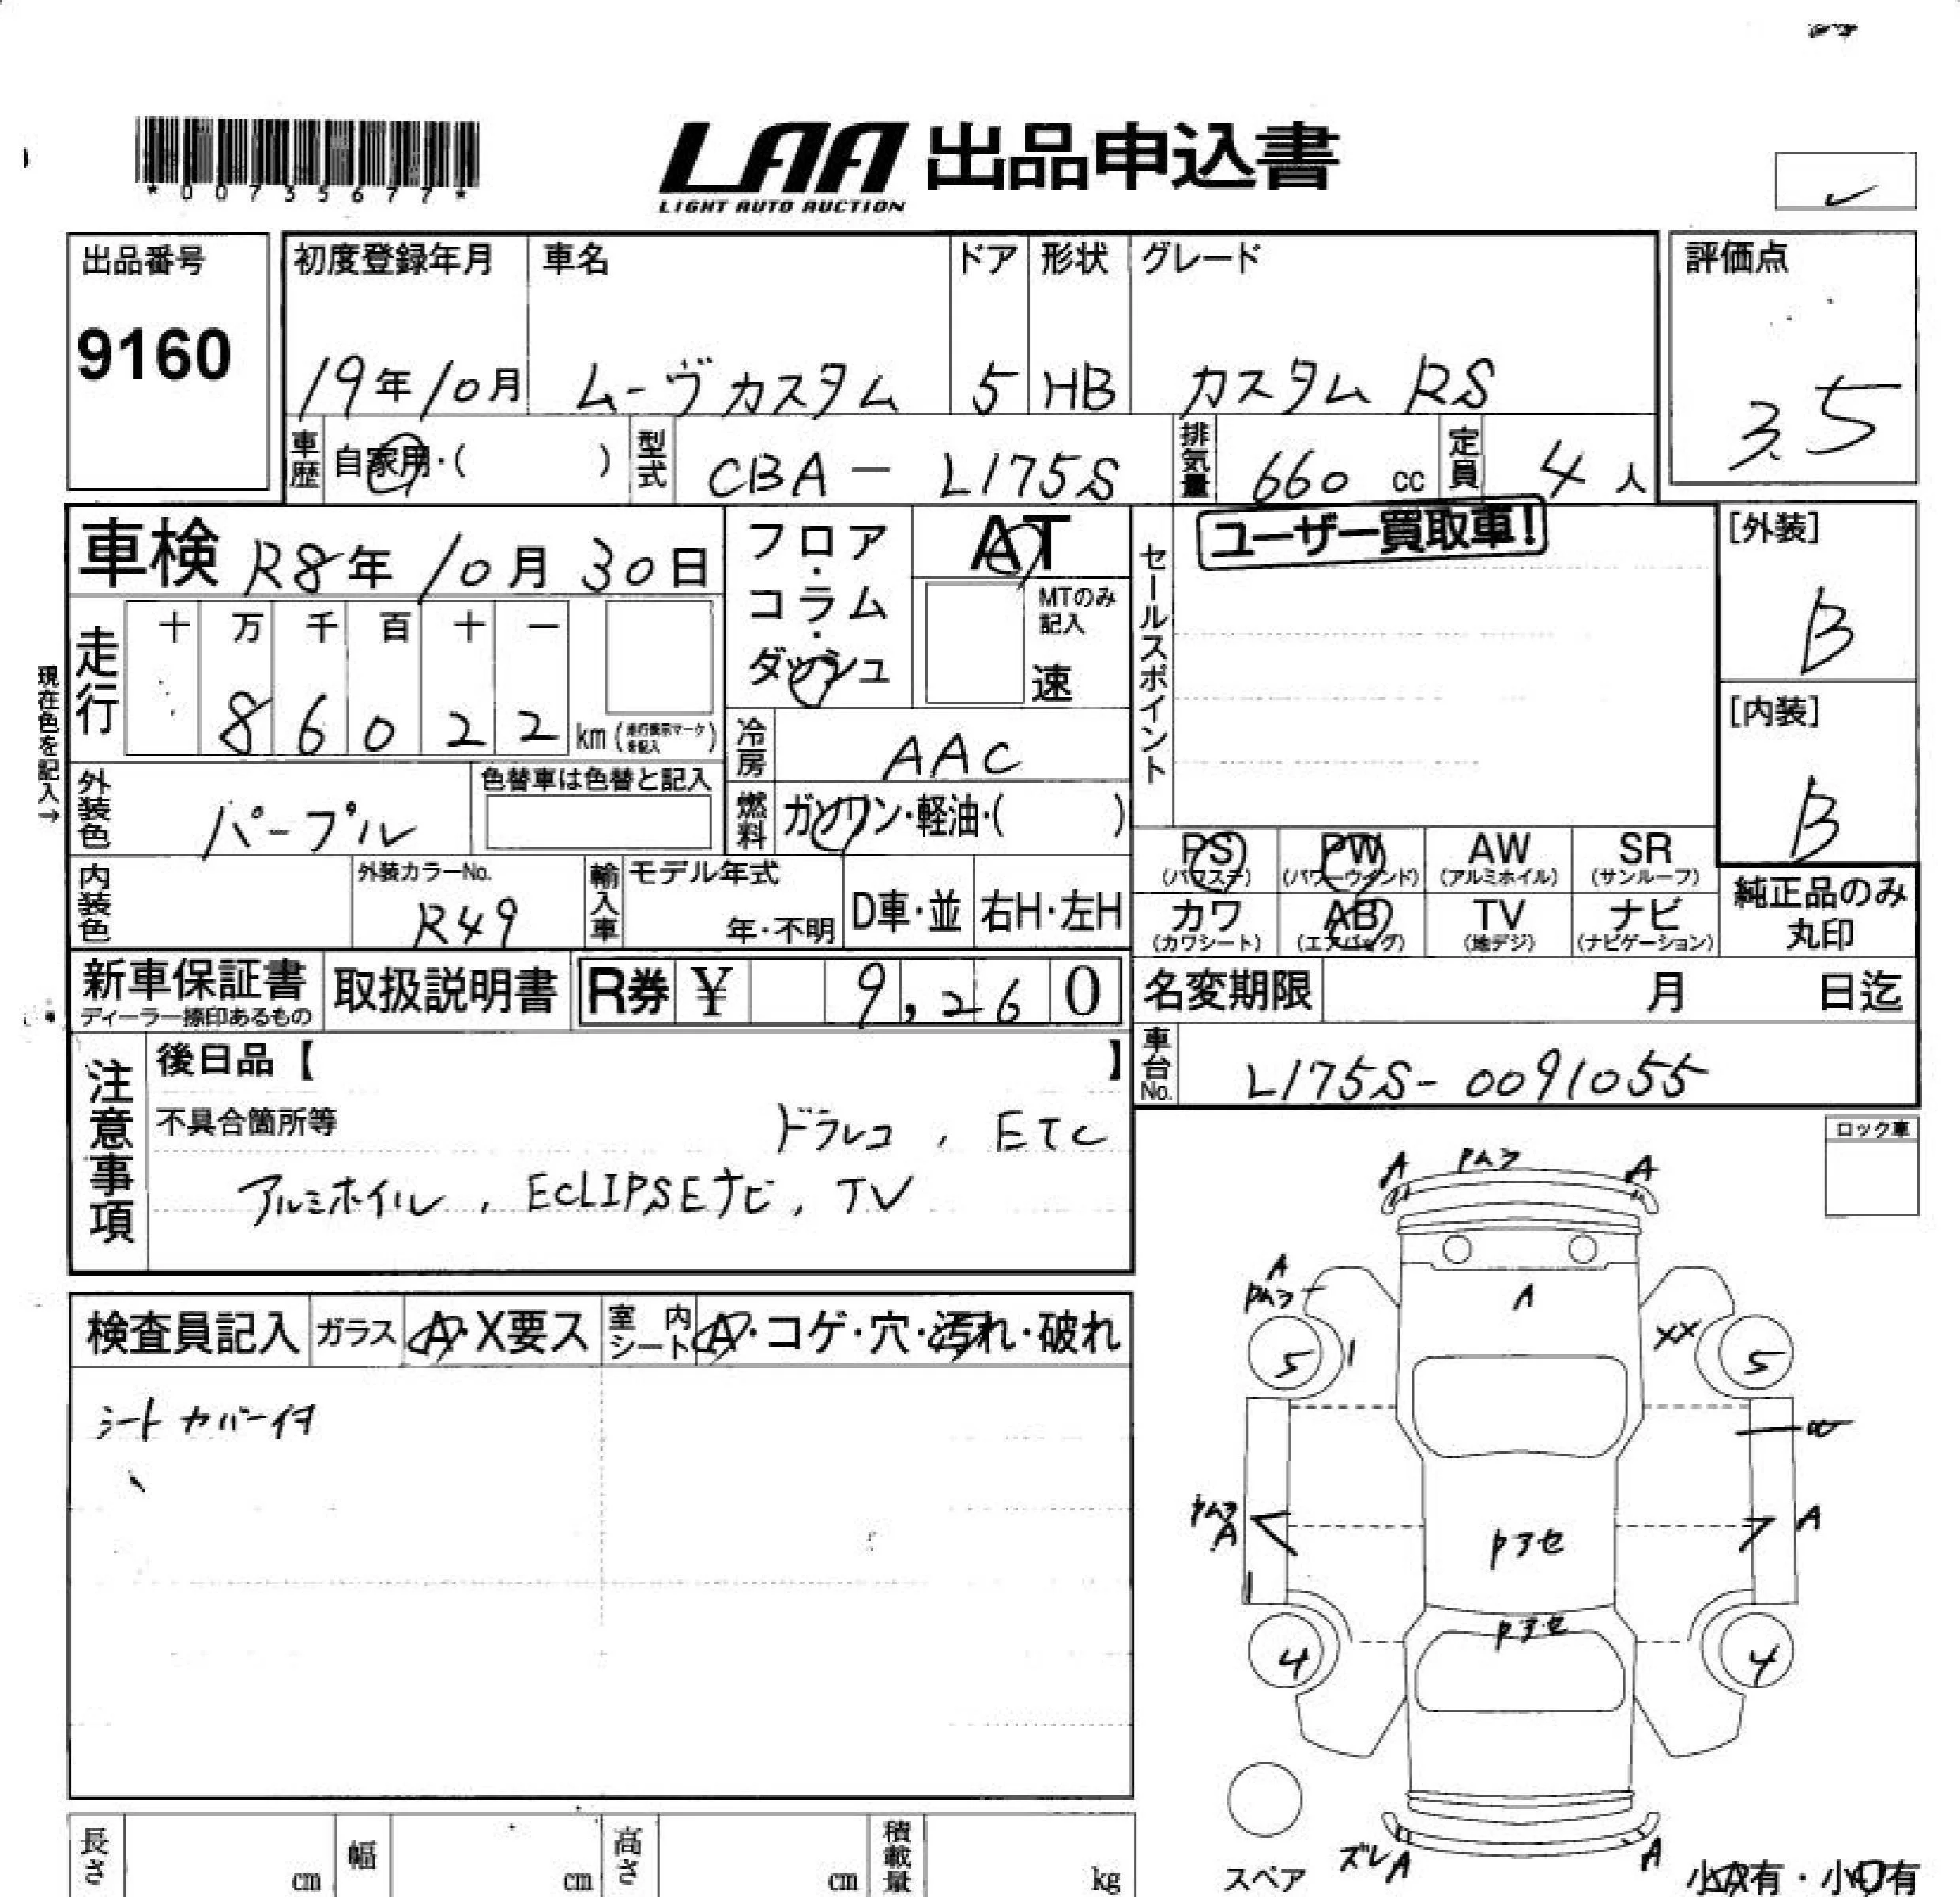 *00735677*
LAA 出品申込書
LIGHT AUTO AUCTION
出品番号
9160
初度登録年月
19年10月
車名
ムーヴカスタム
ドア
5
形状
HB
グレード
カスタム RS
評価点
3.5
車歴 自家用・( )
型式 CBA-L175S
排気量 660 cc
定員 4人
車検 R8年10月30日
現在色を記入→
走行
十 万 千 百 十 一
8 6 0 2 2 km
外装色 パープル
色替車は色替と記入
内装色
外装カラーNo.
R49
フロア・コラム・ダッシュ
AT
MTのみ記入
速
冷房 AAC
燃料 ガソリン・軽油・( )
輸入車
モデル年式
年・不明
D車・並
右H・左H
セールスポイント
ユーザー買取車!
[外装]
B
[内装]
B
PS (パワステ)
PW (パワーウインド)
AW (アルミホイル)
SR (サンルーフ)
カワ (カワシート)
AB (エアバッグ)
TV (地デジ)
ナビ (ナビゲーション)
純正品のみ
丸印
新車保証書
ディーラー捺印あるもの
取扱説明書
R券 ¥ 9,260
名変期限 月 日迄
車台No. L175S-0091055
注意事項
後日品【 】
不具合箇所等
ドラレコ, ETC
アルミホイル, ECLIPSEナビ, TV
ロック車
検査員記入
ガラス A・X要ス
室内シート A・コゲ・穴・汚れ・破れ
シートカバー付
A A
A
A
XX
5 1 5
A A
1
4 4
スペア
ズレA A
小A有・小凹有
長さ cm
幅 cm
高さ cm
積載量 kg